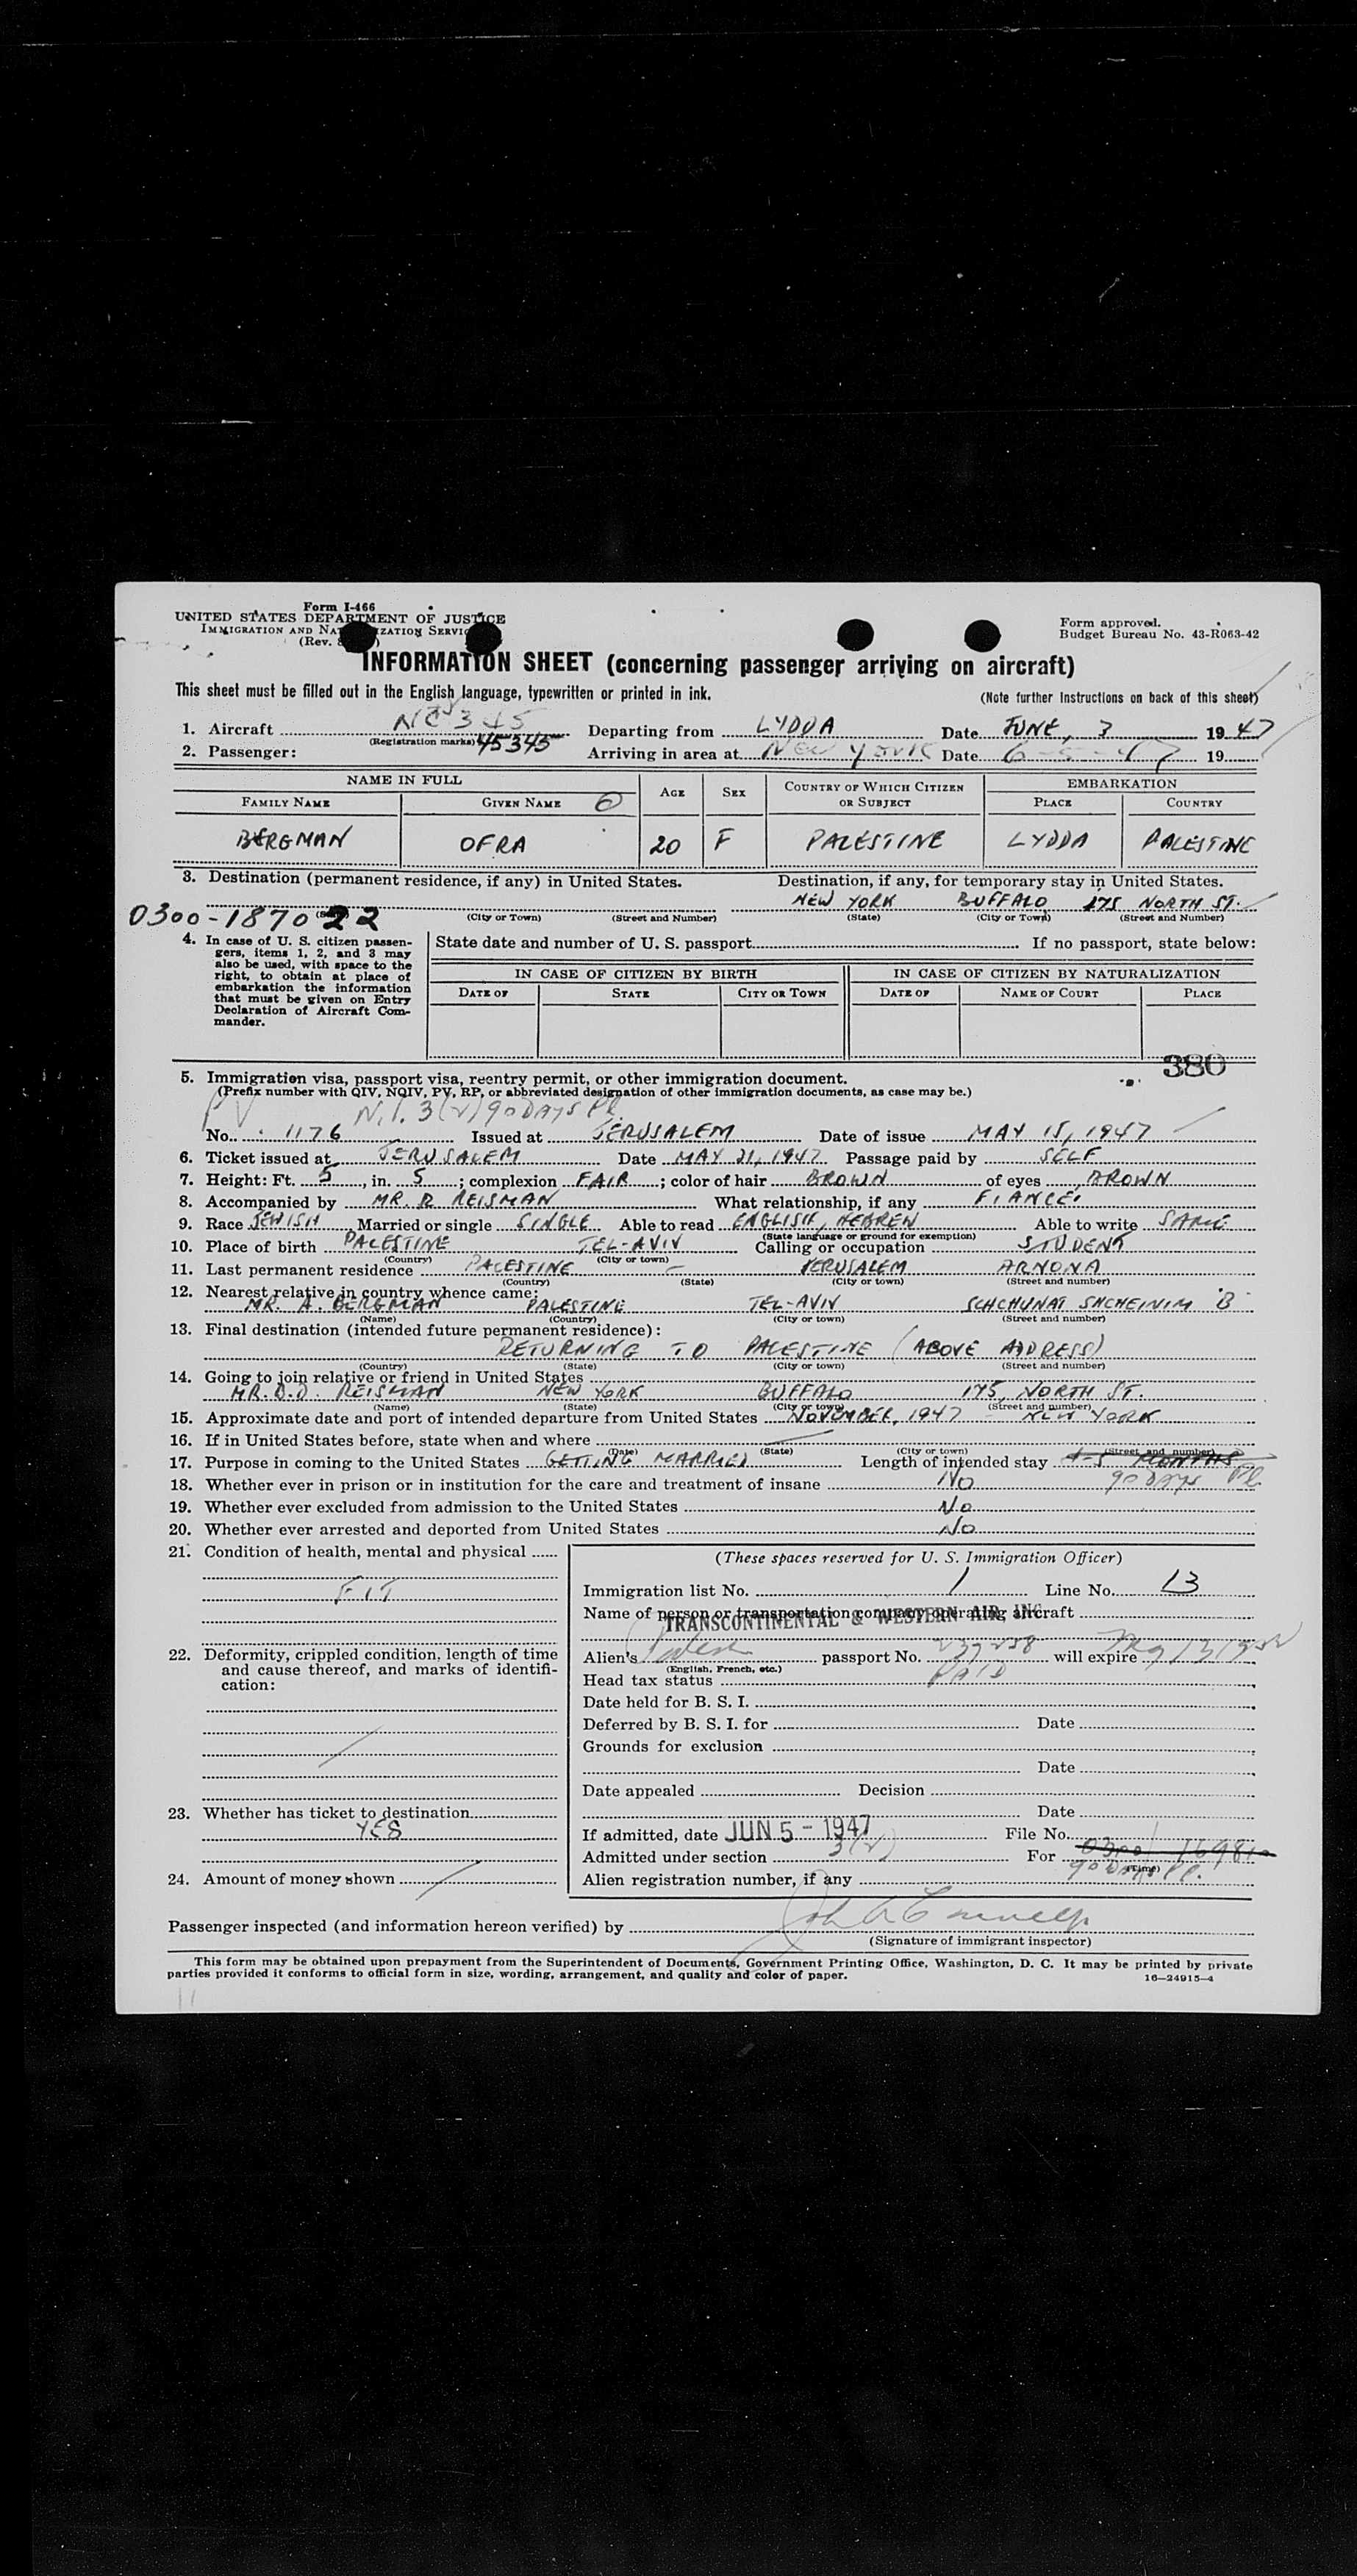 Form I-466
UNITED STATES DEPARTMENT OF JUSTICE
IMMIGRATION AND NATURALIZATION SERVICE
(Rev.
Form approved.
Budget Bureau No. 43-R063-42
INFORMATION SHEET (concerning passenger arriving on aircraft)
This sheet must be filled out in the English language, typewritten or printed in ink.
(Note further instructions on back of this sheet)
1. Aircraft NC 345 Departing from LYDDA Date JUNE, 3 1947
(Registration marks) 45345
2. Passenger: Arriving in area at NEW YORK Date 6-5-47 19
NAME IN FULL AGE SEX COUNTRY OF WHICH CITIZEN OR SUBJECT EMBARKATION
FAMILY NAME GIVEN NAME PLACE COUNTRY
BERGMAN OFRA 20 F PALESTINE LYDDA PALESTINE
3. Destination (permanent residence, if any) in United States. Destination, if any, for temporary stay in United States.
NEW YORK BUFFALO 175 NORTH ST.
0300-187022 (City or Town) (Street and Number) (State) (City or Town) (Street and Number)
4. In case of U. S. citizen passen-
gers, items 1, 2, and 3 may
also be used, with space to the
right, to obtain at place of
embarkation the information
that must be given on Entry
Declaration of Aircraft Com-
mander.
State date and number of U. S. passport If no passport, state below:
IN CASE OF CITIZEN BY BIRTH IN CASE OF CITIZEN BY NATURALIZATION
DATE OF STATE CITY OR TOWN DATE OF NAME OF COURT PLACE
380
5. Immigration visa, passport visa, reentry permit, or other immigration document.
(Prefix number with QIV, NQIV, PV, RP, or abbreviated designation of other immigration documents, as case may be.)
PV N.I. 3(2) 90 DAYS Pl.
No. 1176 Issued at JERUSALEM Date of issue MAY 15, 1947
6. Ticket issued at JERUSALEM Date MAY 21, 1947 Passage paid by SELF
7. Height: Ft. 5, in. 5; complexion FAIR; color of hair BROWN of eyes BROWN
8. Accompanied by MR. D. REISMAN What relationship, if any FIANCE
9. Race JEWISH Married or single SINGLE Able to read ENGLISH, HEBREW Able to write SAME
(State language or ground for exemption)
10. Place of birth PALESTINE TEL-AVIV Calling or occupation STUDENT
(Country) (City or town)
11. Last permanent residence PALESTINE – JERUSALEM ARNONA
(Country) (State) (City or town) (Street and number)
12. Nearest relative in country whence came:
MR. A. BERGMAN PALESTINE TEL-AVIV SCHCHUNAT SHCHEINIM B
(Name) (Country) (City or town) (Street and number)
13. Final destination (intended future permanent residence):
RETURNING TO PALESTINE (ABOVE ADDRESS)
(Country) (State) (City or town) (Street and number)
14. Going to join relative or friend in United States
MR. D.D. REISMAN NEW YORK BUFFALO 175, NORTH ST.
(Name) (State) (City or town) (Street and number)
15. Approximate date and port of intended departure from United States NOVEMBER, 1947 – NEW YORK
16. If in United States before, state when and where
(Date) (State) (City or town) (Street and number)
17. Purpose in coming to the United States GETTING MARRIED Length of intended stay 4-5 MONTHS
90 DAYS Pl.
18. Whether ever in prison or in institution for the care and treatment of insane NO
19. Whether ever excluded from admission to the United States NO
20. Whether ever arrested and deported from United States NO
21. Condition of health, mental and physical
FIT
22. Deformity, crippled condition, length of time
and cause thereof, and marks of identifi-
cation:
23. Whether has ticket to destination
YES
24. Amount of money shown
(These spaces reserved for U. S. Immigration Officer)
Immigration list No. 1 Line No. 13
Name of person or transportation company operating aircraft
TRANSCONTINENTAL & WESTERN AIR, INC.
Alien's passport No. will expire
(English, French, etc.)
Head tax status PAID
Date held for B. S. I.
Deferred by B. S. I. for Date
Grounds for exclusion
Date
Date appealed Decision
Date
If admitted, date JUN 5 - 1947 File No.
Admitted under section 3(2) For 90 DAYS Pl.
(Time)
Alien registration number, if any
Passenger inspected (and information hereon verified) by
(Signature of immigrant inspector)
This form may be obtained upon prepayment from the Superintendent of Documents, Government Printing Office, Washington, D. C. It may be printed by private
parties provided it conforms to official form in size, wording, arrangement, and quality and color of paper.
16—24915-4